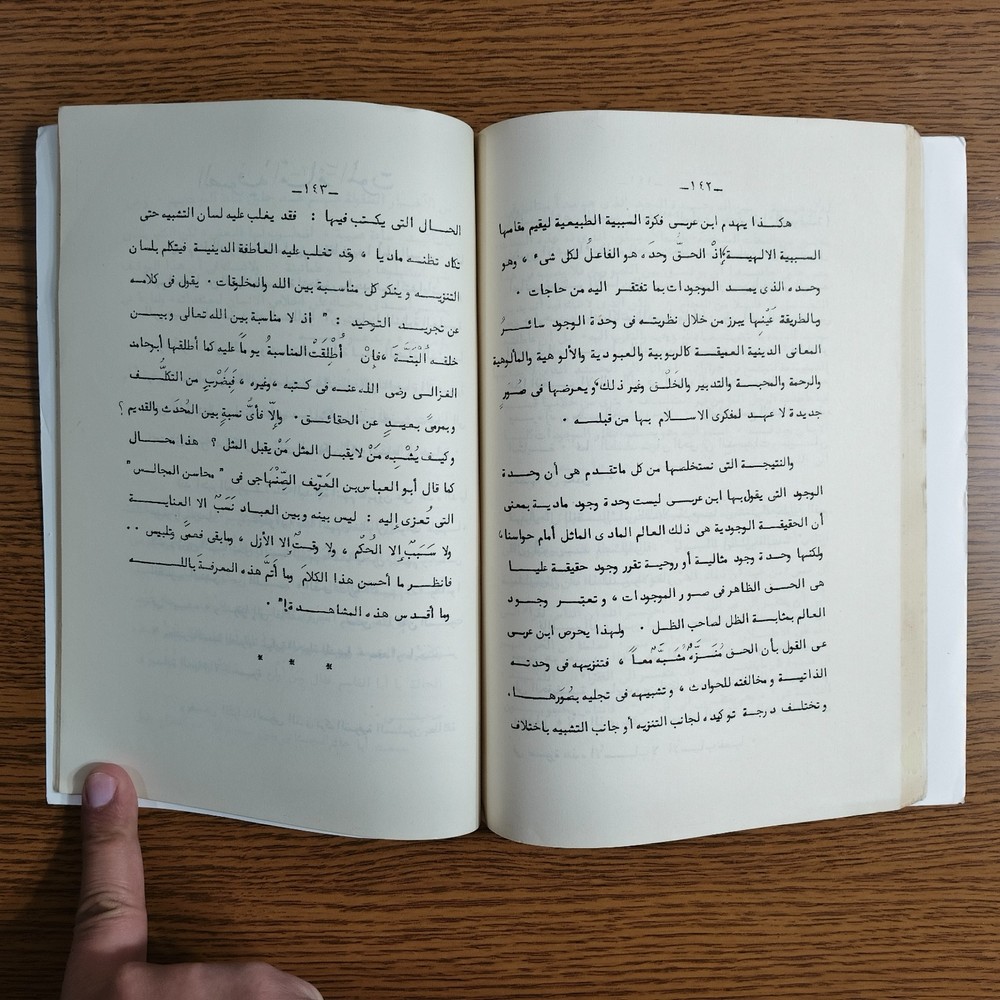 ـ١٤٢ـ
هكـــذا يهدم ابن عربى فكرة السببية الطبيعية ليقيم مقامها
السببية الالهيـــة، إذْ الحـقّ وحدَه هو الفاعلُ لكل شىء ، وهو
وحـده الذى يمـــد الموجودات بما تفتقـر اليه من حاجات .
وبالطريقة عَيْنِها يبرز من خلال نظريته فى وحدة الوجود سائــرُ
المعانى الدينية العميقــة كالربوبية والعبودية والألوهية والمألوهية
والرحمة والمحبــة والتدبير والخَلْــق وغير ذلك، ويعرضها فى صُوَرٍ
جديدة لا عهـد لمفكرى الاسـلام بها من قبلــه .
والنتيجـة التى نستخلصها من كل ماتقـدم هى أن وحــدة
الوجود التى يقول بها ابن عربـى ليست وحدة وجود ماديـة بمعنى
أن الحقيقـة الوجودية هى ذلك العالم المادى الماثل أمام حواسنا،
ولكنها وحـدة وجود مثالية أو روحيـة تقرر وجود حقيقة عليــا
هى الحـق الظاهر فى صـور الموجودات ، وتعتبـر وجــود
العالم بمثابـة الظل لصاحب الظـل . ولهذا يحرص ابن عربى
عى القول بأن الحق مُنَــزَّهٌ مُشَبَّهٌ معاً ، فتنزيهه فى وحدتـه
الذاتيـة ومخالفته للحوادث ، وتشبيهه فى تجليه بصُوَرهــا.
وتختلـف درجـة توكيده لجانب التنزيه أو جانب التشبيه باختلاف
ـ١٤٣ـ
الحـــال التى يكـتب فيهـا : فقد يغلب عليه لسان التشبيه حتى
تكاد تظنـه ماديا ، وقد تغلب عليه العاطفة الدينيـة فيتكلم بلسان
التنزيــه وينكر كل مناسبة بين الله والمخلوقات . يقول فى كلامـه
عن تجريــد التوحيد : " اذ لا مناسبة بين الله تعالى وبيــن
خلقــه أَلْبَتَّــةَ ، فإِنْ أُطْلِقَتْ المناسبةُ يوماً عليه كما أطلقها أبوحامد
الغـزالـى رضى اللـه عنـه فى كتبـه ،وغيره ، فَبِضَرْبٍ من التكلُّــف
وبمرمىً بـعيـدٍ عن الحقائـق . وإلاّ فأىُّ نسبةٍ بين المُحْدَث والقديم ؟
وكـيف يُشْبِـه مَنْ لا يقبـل المثل مَنْ يقبل المثل ؟ هذا محــال
كما قال أبو العباس بن العَرِّيف الصِّنْهَاجى فى " محاسن المجالس"
التى تُعـزى إليه : ليس بينه وبين العبـاد نَسَبٌ الا العنايــة
ولا سَبَبٌ إلا الحُكْم ، ولا وقـتٌ إلا الأزل ، ومابقى فعمىً وتلبيس ..
فانظـــر ما أحسن هذا الكلامَ وما أَتَمَّ هذه المعرفةَ باللــه
وما أقـدس هذه المشاهـدة!" .
* * *